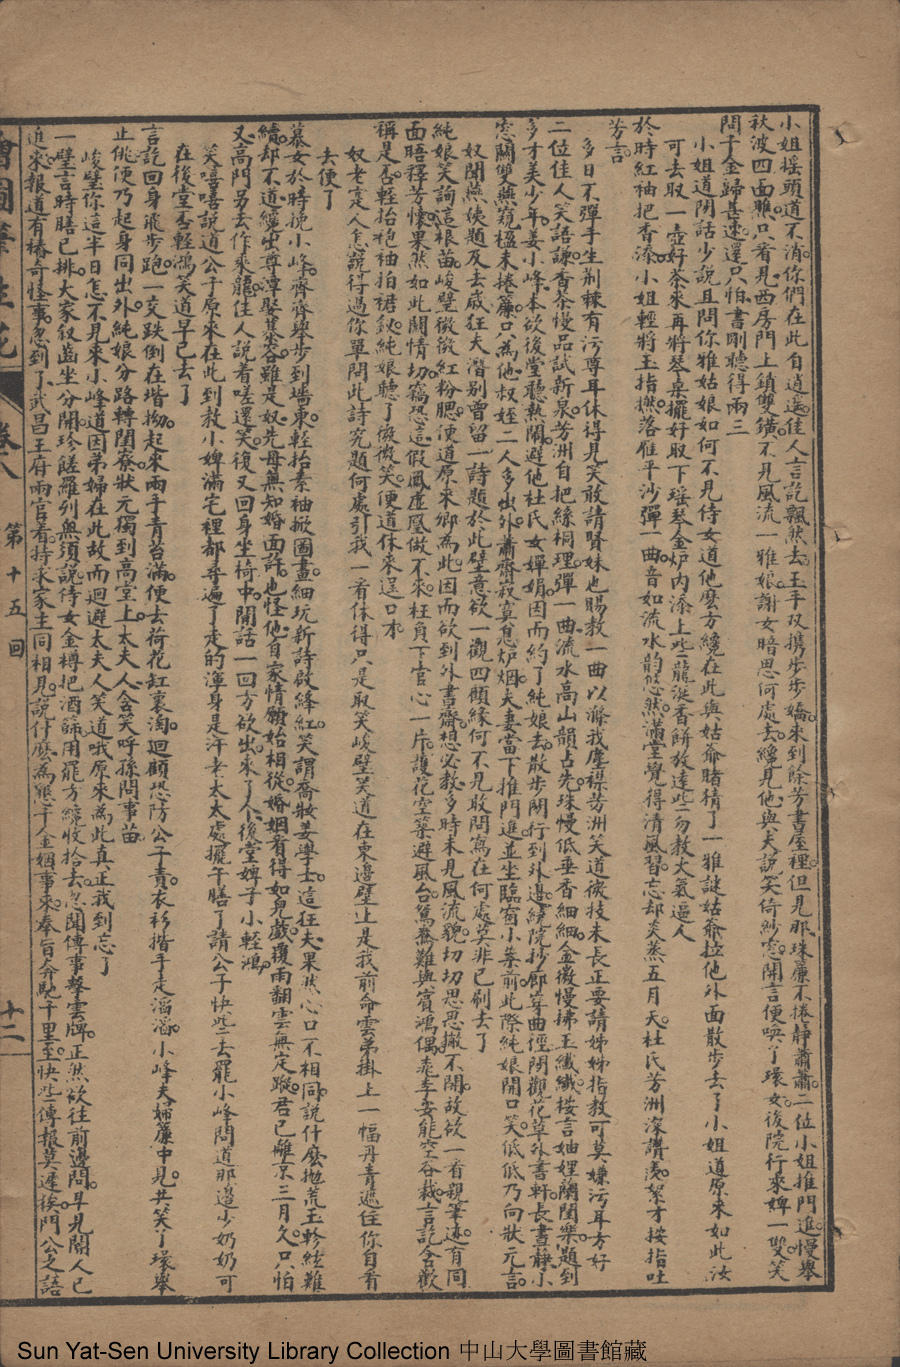 小姐搖頭道不消你們在此自道遙佳人言訖飄然去玉手双携步步嬌來到餘芳書屋裡但見那珠簾不捲靜蕭蕭二位小姐推門進慢舉
秋波四面瞧只看見西房門上鎖雙鐄不見風流一雅娘謝女暗思何處去纔見他與夫說笑倚紗窓開言便喚了環女後院行來婢一雙笑
問千金歸甚速還只怕書剛聽得兩三
小姐道閉話少說且問你雅姑娘如何不見侍女道他麽方纔在此與姑爺賭猜了一雅謎姑爺拉他外面散步去了小姐道原來如此汝
可去取一壺好茶來再將琴桌擺好取下瑤琴金炉內添上些龍涎香餅放達些勿教大氣逼人
於時紅袖把香添小姐輕將玉指撚落雁平沙彈一曲音如流水韵悠然滿堂覺得清風習忘却炎蒸五月天杜氏芳洲深讚羨絮才按指吐
芳言
多日不彈手生荆棘有污尊耳休得見笑敢請賢妹也賜教一曲以滌我塵襟芳洲笑道微技未長正要請姊姊指教可莫嫌污耳方好
二位佳人笑語謙香茶慢品試新泉芳洲自把絲桐理彈一曲流水高山韻占先珠慢低垂香細細金徽慢拂玉纖纖按言妯娌蘭閨樂題到
多才美少年姜小峰本欲後堂聽熱鬧避他杜氏女嬋娟因而約了純娘去散步閑行到外邊繞院抄廊穿曲徑閑觀花草外書軒長晝靜小
窓關雙燕窺楹未捲簾只為他叔姪二人多出外蕭齋寂寞息炉烟夫妻當下推門進並坐臨窗小案前此際純娘開口笑低低乃向狀元言
奴聞燕俠題及去歲狂夫潛别曾留一詩題於此壁意欲一觀四顧緣何不見敢問寫在何處莫非已刷去了
純娘笑詢這根苗峻壁微微紅粉腮便道原來鄉為此因而欲到外書齋想必教多時未見風流貌切切思思撇不開故欲一看親筆迹有同
面晤釋芳懷果然如此關情切竊恐這假鳳虛凰做不來枉負下官心一片護花空築避風台鴛鴦難與賓鴻偶桃李安能空谷栽言訖含歡
稱是否輕抬袍袖拍裙釵純娘聽了微微笑便道休來逞口才
奴老寔人怎說得過你單問此詩究題何處引我一看休得只是取笑峻壁笑道在東邊壁上是我前命雲弟掛上一幅丹青遮住你自看
去便了
慕女於時挽小峰齊齊舉步到墻東輕抬素袖掀圖畫細玩新詩啟絳紅笑謂喬妝姜學士這狂夫果然心口不相同說什麽拋荒玉軫絃難
續却不道纔出尊尊娶慕容雖是奴先母無知婚面許也怪他自家情願始相從婚姻看得如兒戲覆雨翻雲無定蹤君已離京三月久只怕
又高門另去作乘龍佳人說着嗟還笑復又回身坐椅中閑話一回方欲出來了个後堂婢子小輕鴻
笑嘻嘻說道公子原來在此到教小婢滿宅裡都尋遍了走的渾身是汗老太太處擺午膳了請公子快些去罷小峰問道那邊少奶奶可
在後堂否輕鴻笑道早已去了
言訖回身飛步跑一交跌倒在堦坳起來兩手青苔滿便去荷花缸裏淘迴顧恐防公子責衣衫揩手走滔滔小峰夫婦簾中見共笑了環舉
止佻便乃起身同出外純娘分路轉閨寮狀元獨到高堂上太夫人含笑呼孫問事苗
峻壁你這半日怎不見來小峰道因弟婦在此故而迴避太夫人笑道哦原來為此真正我到忘了
一壁言時膳已排大家叙齒坐分開珍饈羅列無須說侍女金樽把酒篩用罷方纔收拾去忽聞傳事擊雲牌正然欲往前邊問早見閽人已
進來報道有樁奇怪事忽到了武昌王府兩官着持求家主同相見說什麽為懸千金姻事來奉旨奔馳千里至快些傳報莫遲挨門公之語
繪圖筆生花 卷八 第十五回 十二
Sun Yat-Sen University Library Collection 中山大學圖書館藏